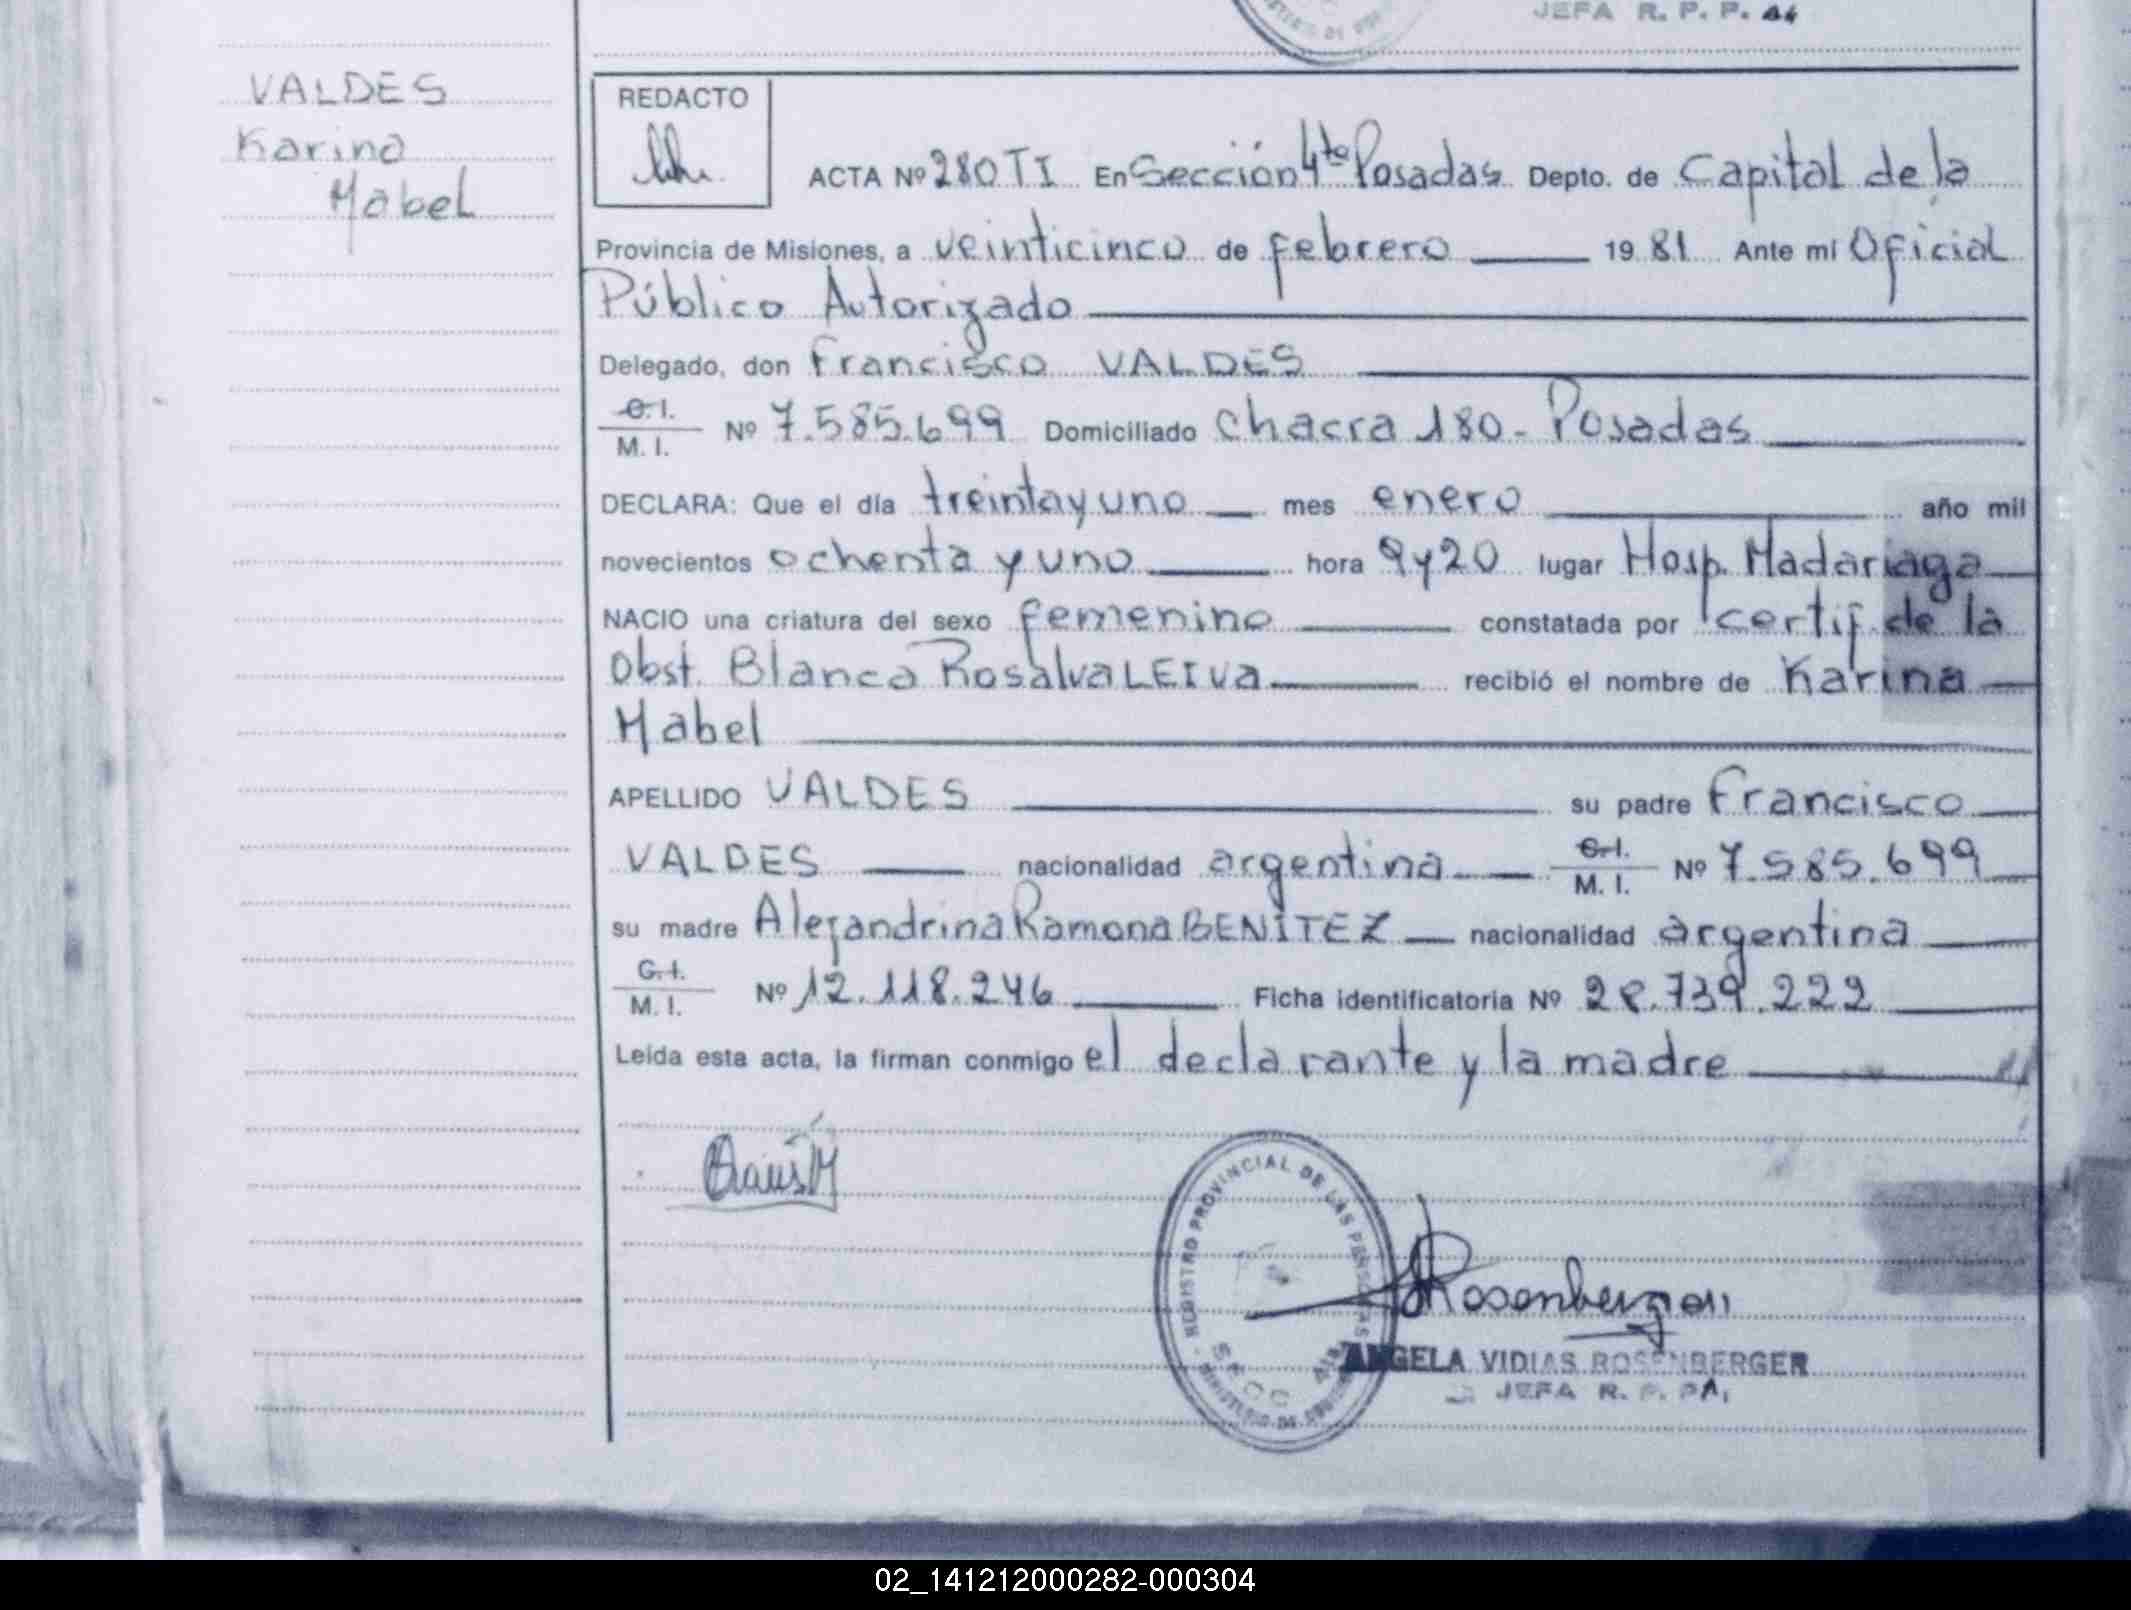 JEFA R. P. P.
VALDES
Karina
Mabel
REDACTO
ACTA Nº 280 TI En Sección 4ta Posadas Depto. de Capital de la
Provincia de Misiones, a veinticinco de febrero 19 81 Ante mí Oficial
Público Autorizado
Delegado, don Francisco VALDES
C. I.
M. I. Nº 7.585.699 Domiciliado Chacra 180 - Posadas
DECLARA: Que el día treinta y uno mes enero año mil
novecientos ochenta y uno hora 9 y 20 lugar Hosp. Madariaga
NACIO una criatura del sexo femenino constatada por certif. de la
Obst. Blanca Rosalva LEIVA recibió el nombre de Karina
Mabel
APELLIDO VALDES su padre Francisco
VALDES nacionalidad argentina C. I.
M. I. Nº 7.585.699
su madre Alejandrina Ramona BENITEZ nacionalidad argentina
C. I.
M. I. Nº 12.118.246 Ficha identificatoria Nº 28.739.222
Leída esta acta, la firman conmigo el declarante y la madre
REGISTRO PROVINCIAL DE LAS PERSONAS
Rosenberger
ANGELA VIDIAS ROSENBERGER
JEFA R. P. P.
02_141212000282-000304